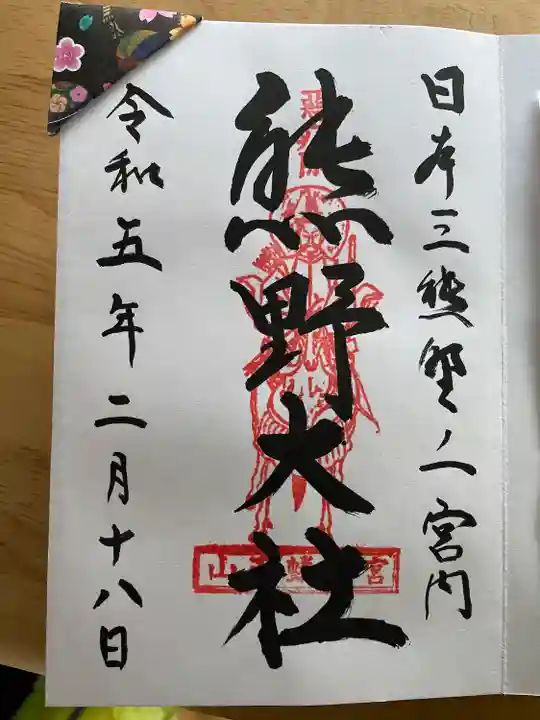 日本三熊野ノ一宮内
熊野大社
令和五年二月十八日
山 宮